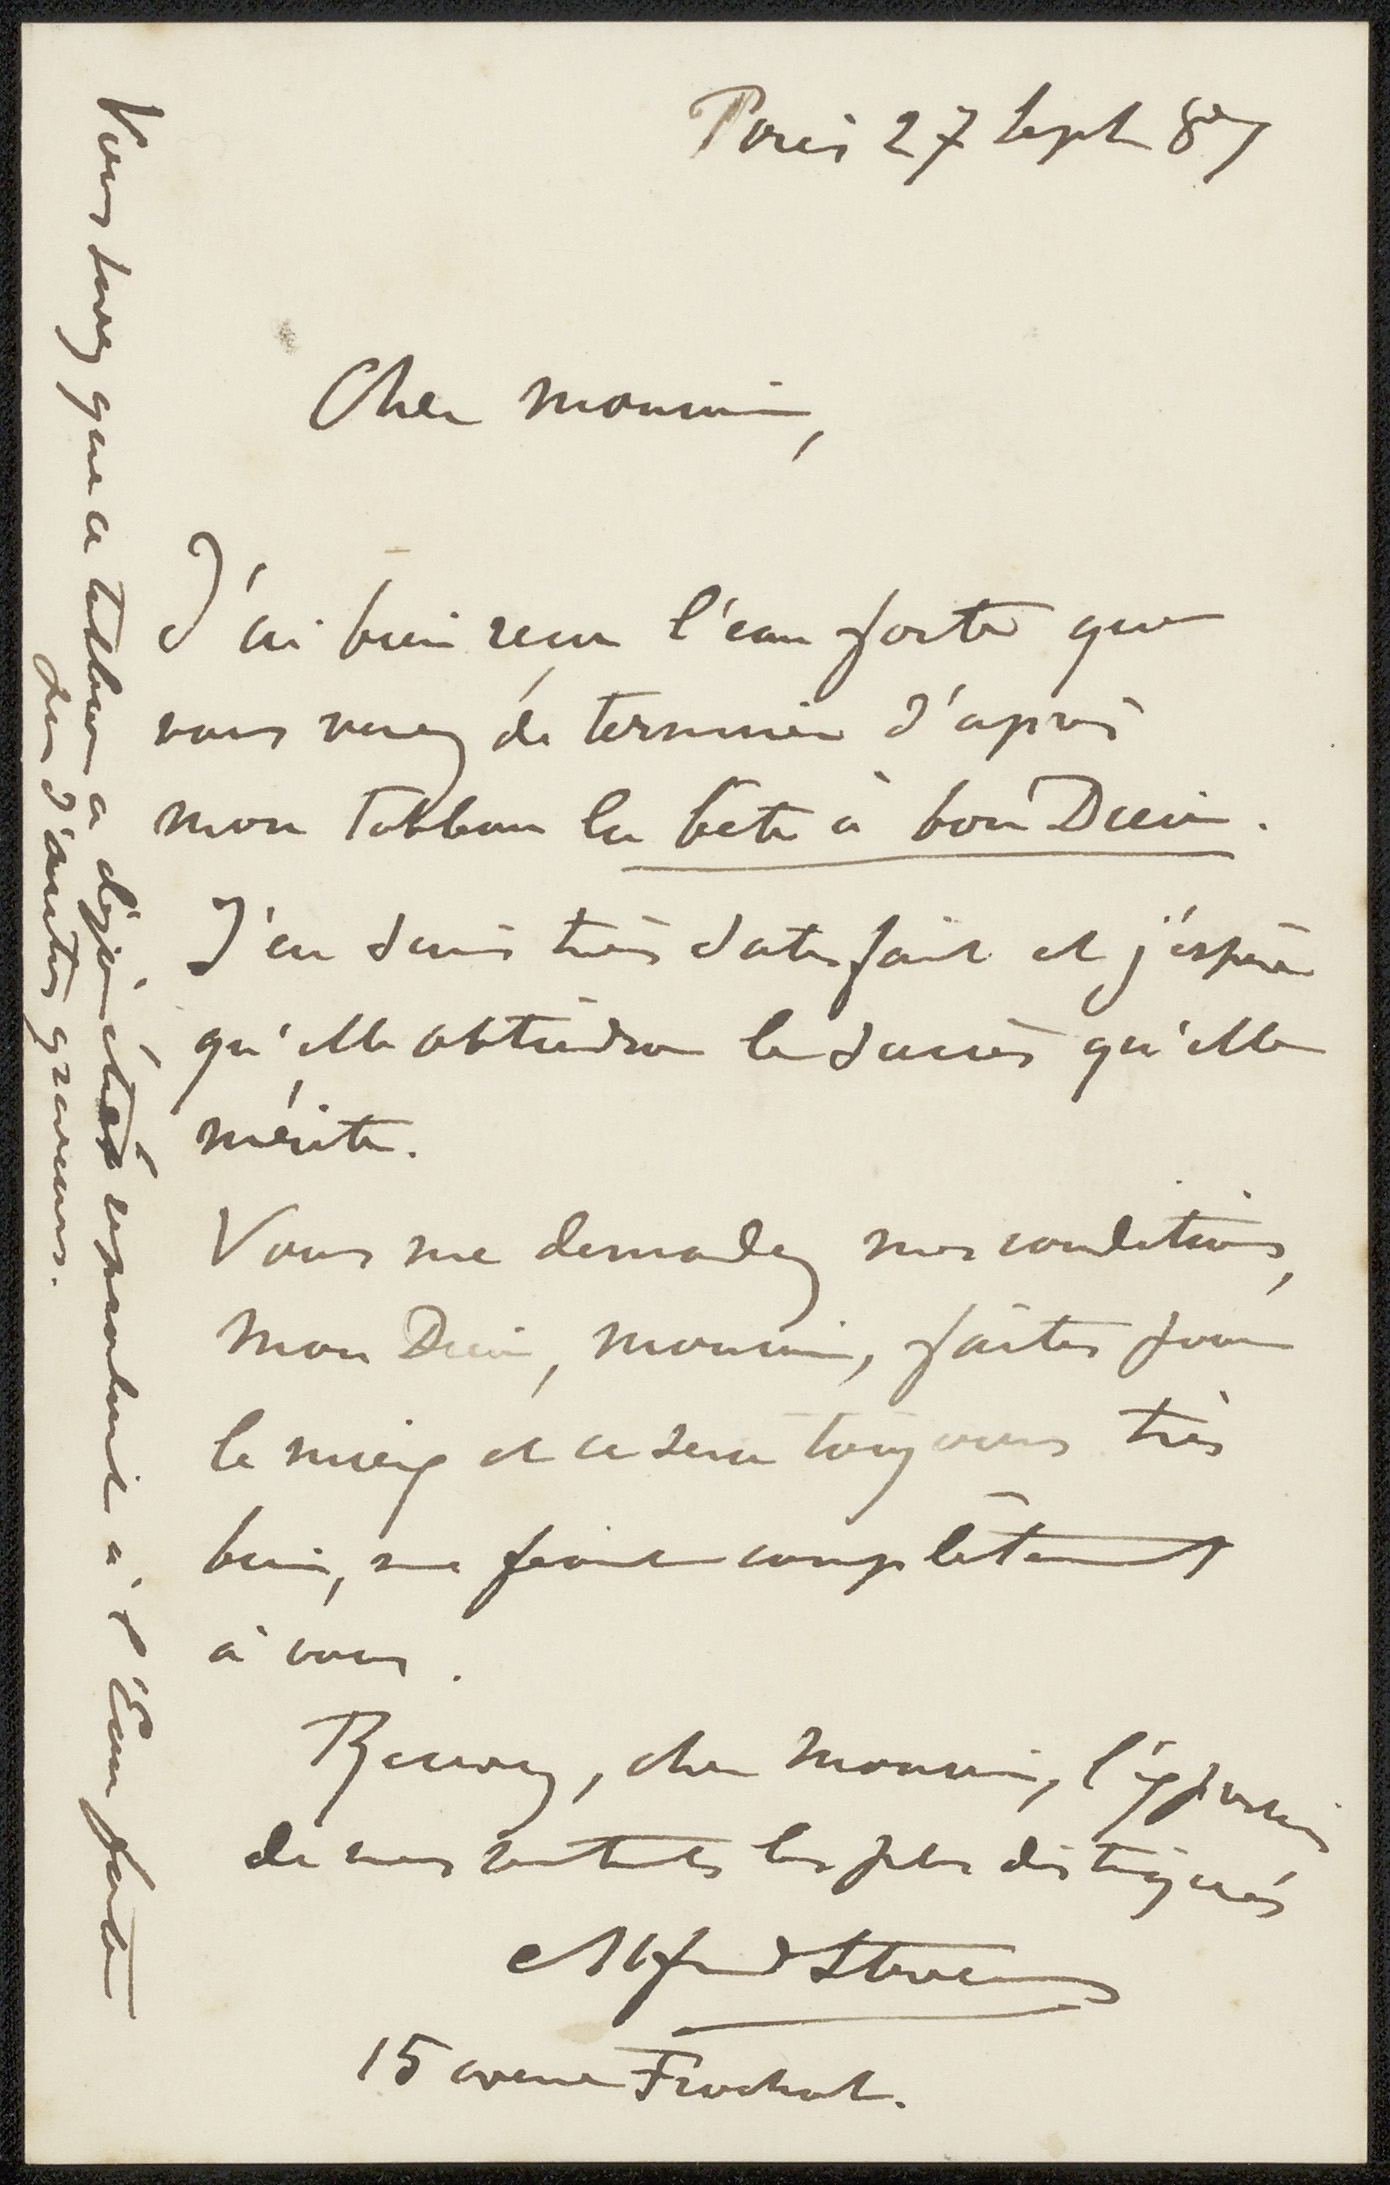 Paris 27 Sept 87
Cher monsieur,
J'ai bien reçu l'eau forte que
vous venez de terminer d'après
mon tableau la bête à bon Dieu.
J'en suis très satisfait et j'espère
qu'elle obtiendra le succès qu'elle
mérite.
Vous me demandez mes conditions,
mon Dieu, monsieur, faites pour
le mieux et ce sera toujours très
bien, me fiant complètement
à vous.
Recevez, cher monsieur, l'expression
de mes sentiments les plus distingués
Alfred Stevens
15 avenue Frochot.
Vous savez que ce tableau a déjà été reproduit à l'Eau forte
par d'autres graveurs.